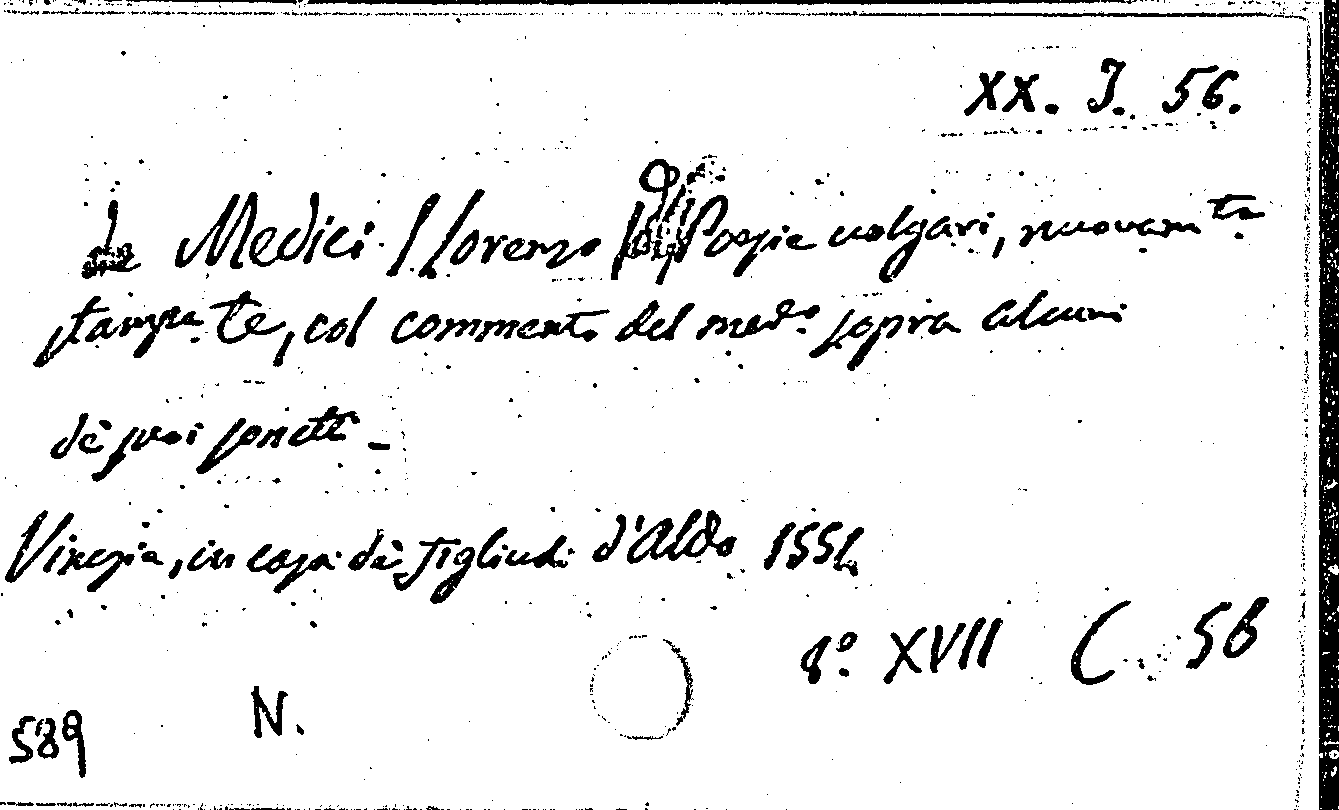 XX. J. 56.
de' Medici (Lorenzo) Poesie volgari, nuovamte.
stampate, col commento del medo. sopra alcuni
dè suoi sonetti -
Vinegia, in casa dè figliuoli d'Aldo 1554.
8o. XVII C 56
N.
589